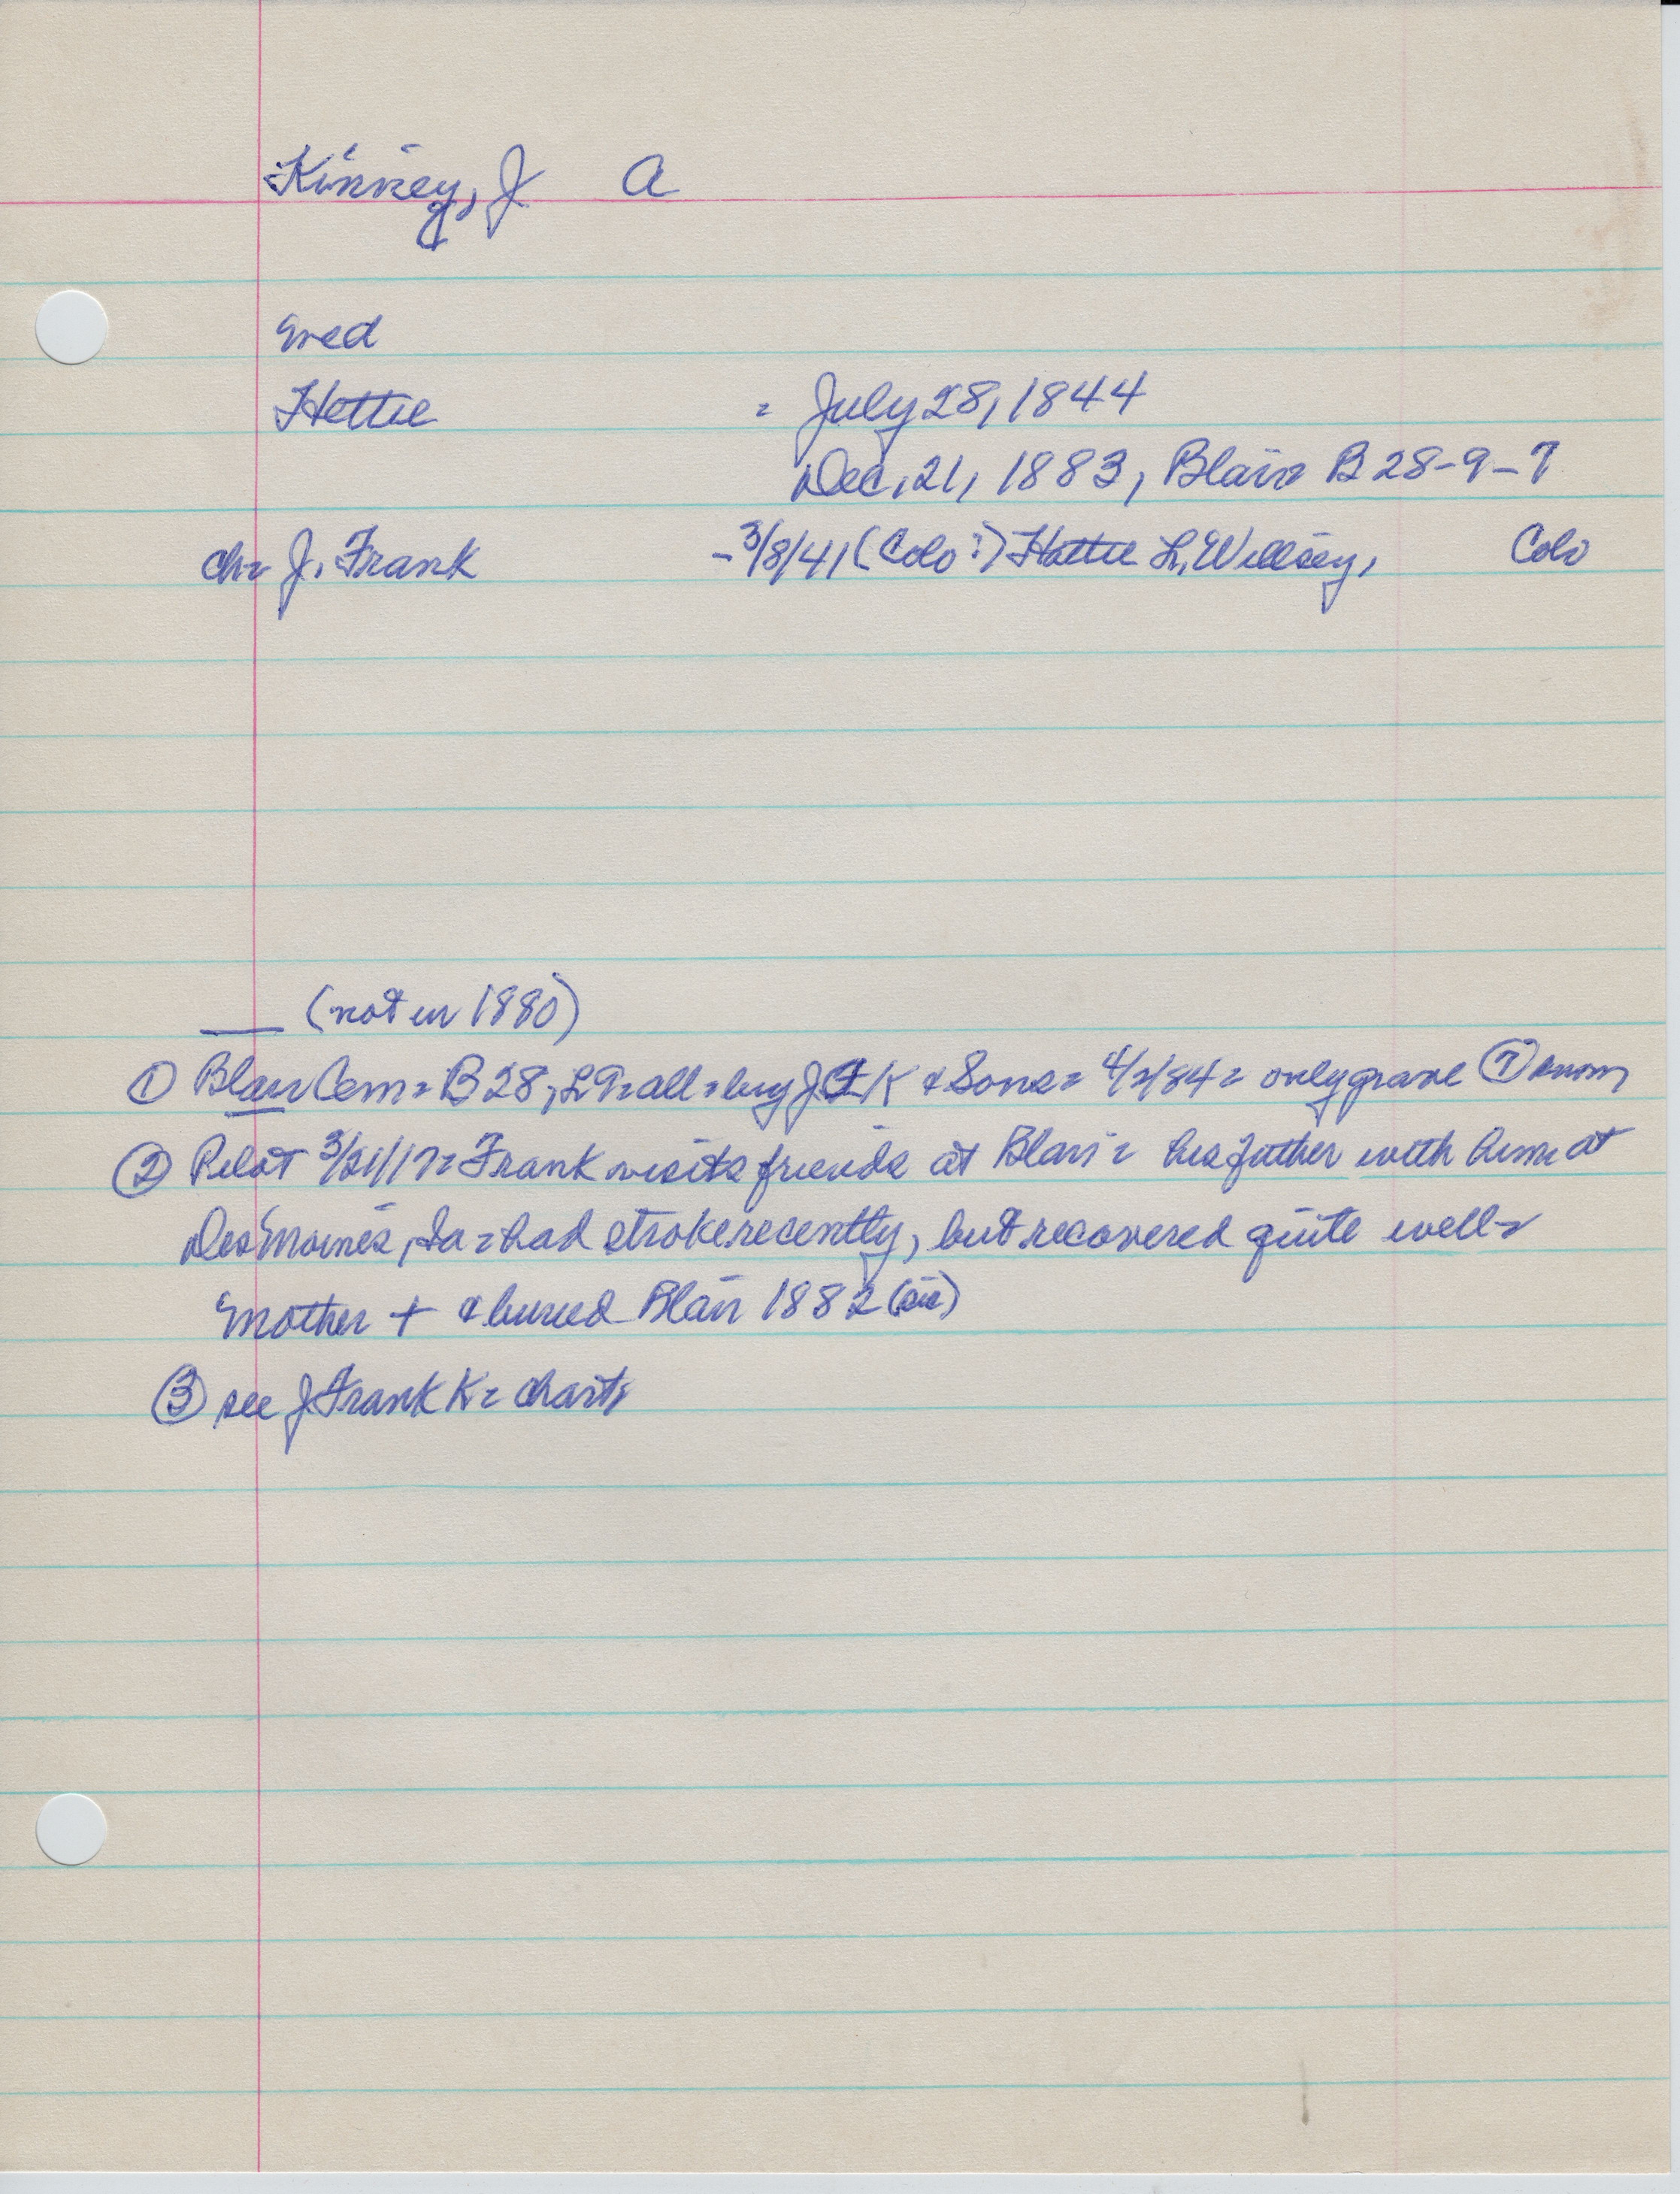 Kinney, J A
med
Hettie = July 28, 1844
Dec, 21, 1883, Blair B 28-9-7
ch= J. Frank - 3/8/41 (Colo?) Hattie L. Willsey, Colo
(not in 1880)
① Blair Cem = B 28, L 9 = all = buy J K & Sons = 4/2/84 = only grave ⑦ known
② Pilot 3/21/17 = Frank visits friends at Blair = his father with him at
Des Moines, Ia = had stroke recently, but recovered quite well =
Mother + & buried Blair 1882 (sic)
③ see J Frank K = charts